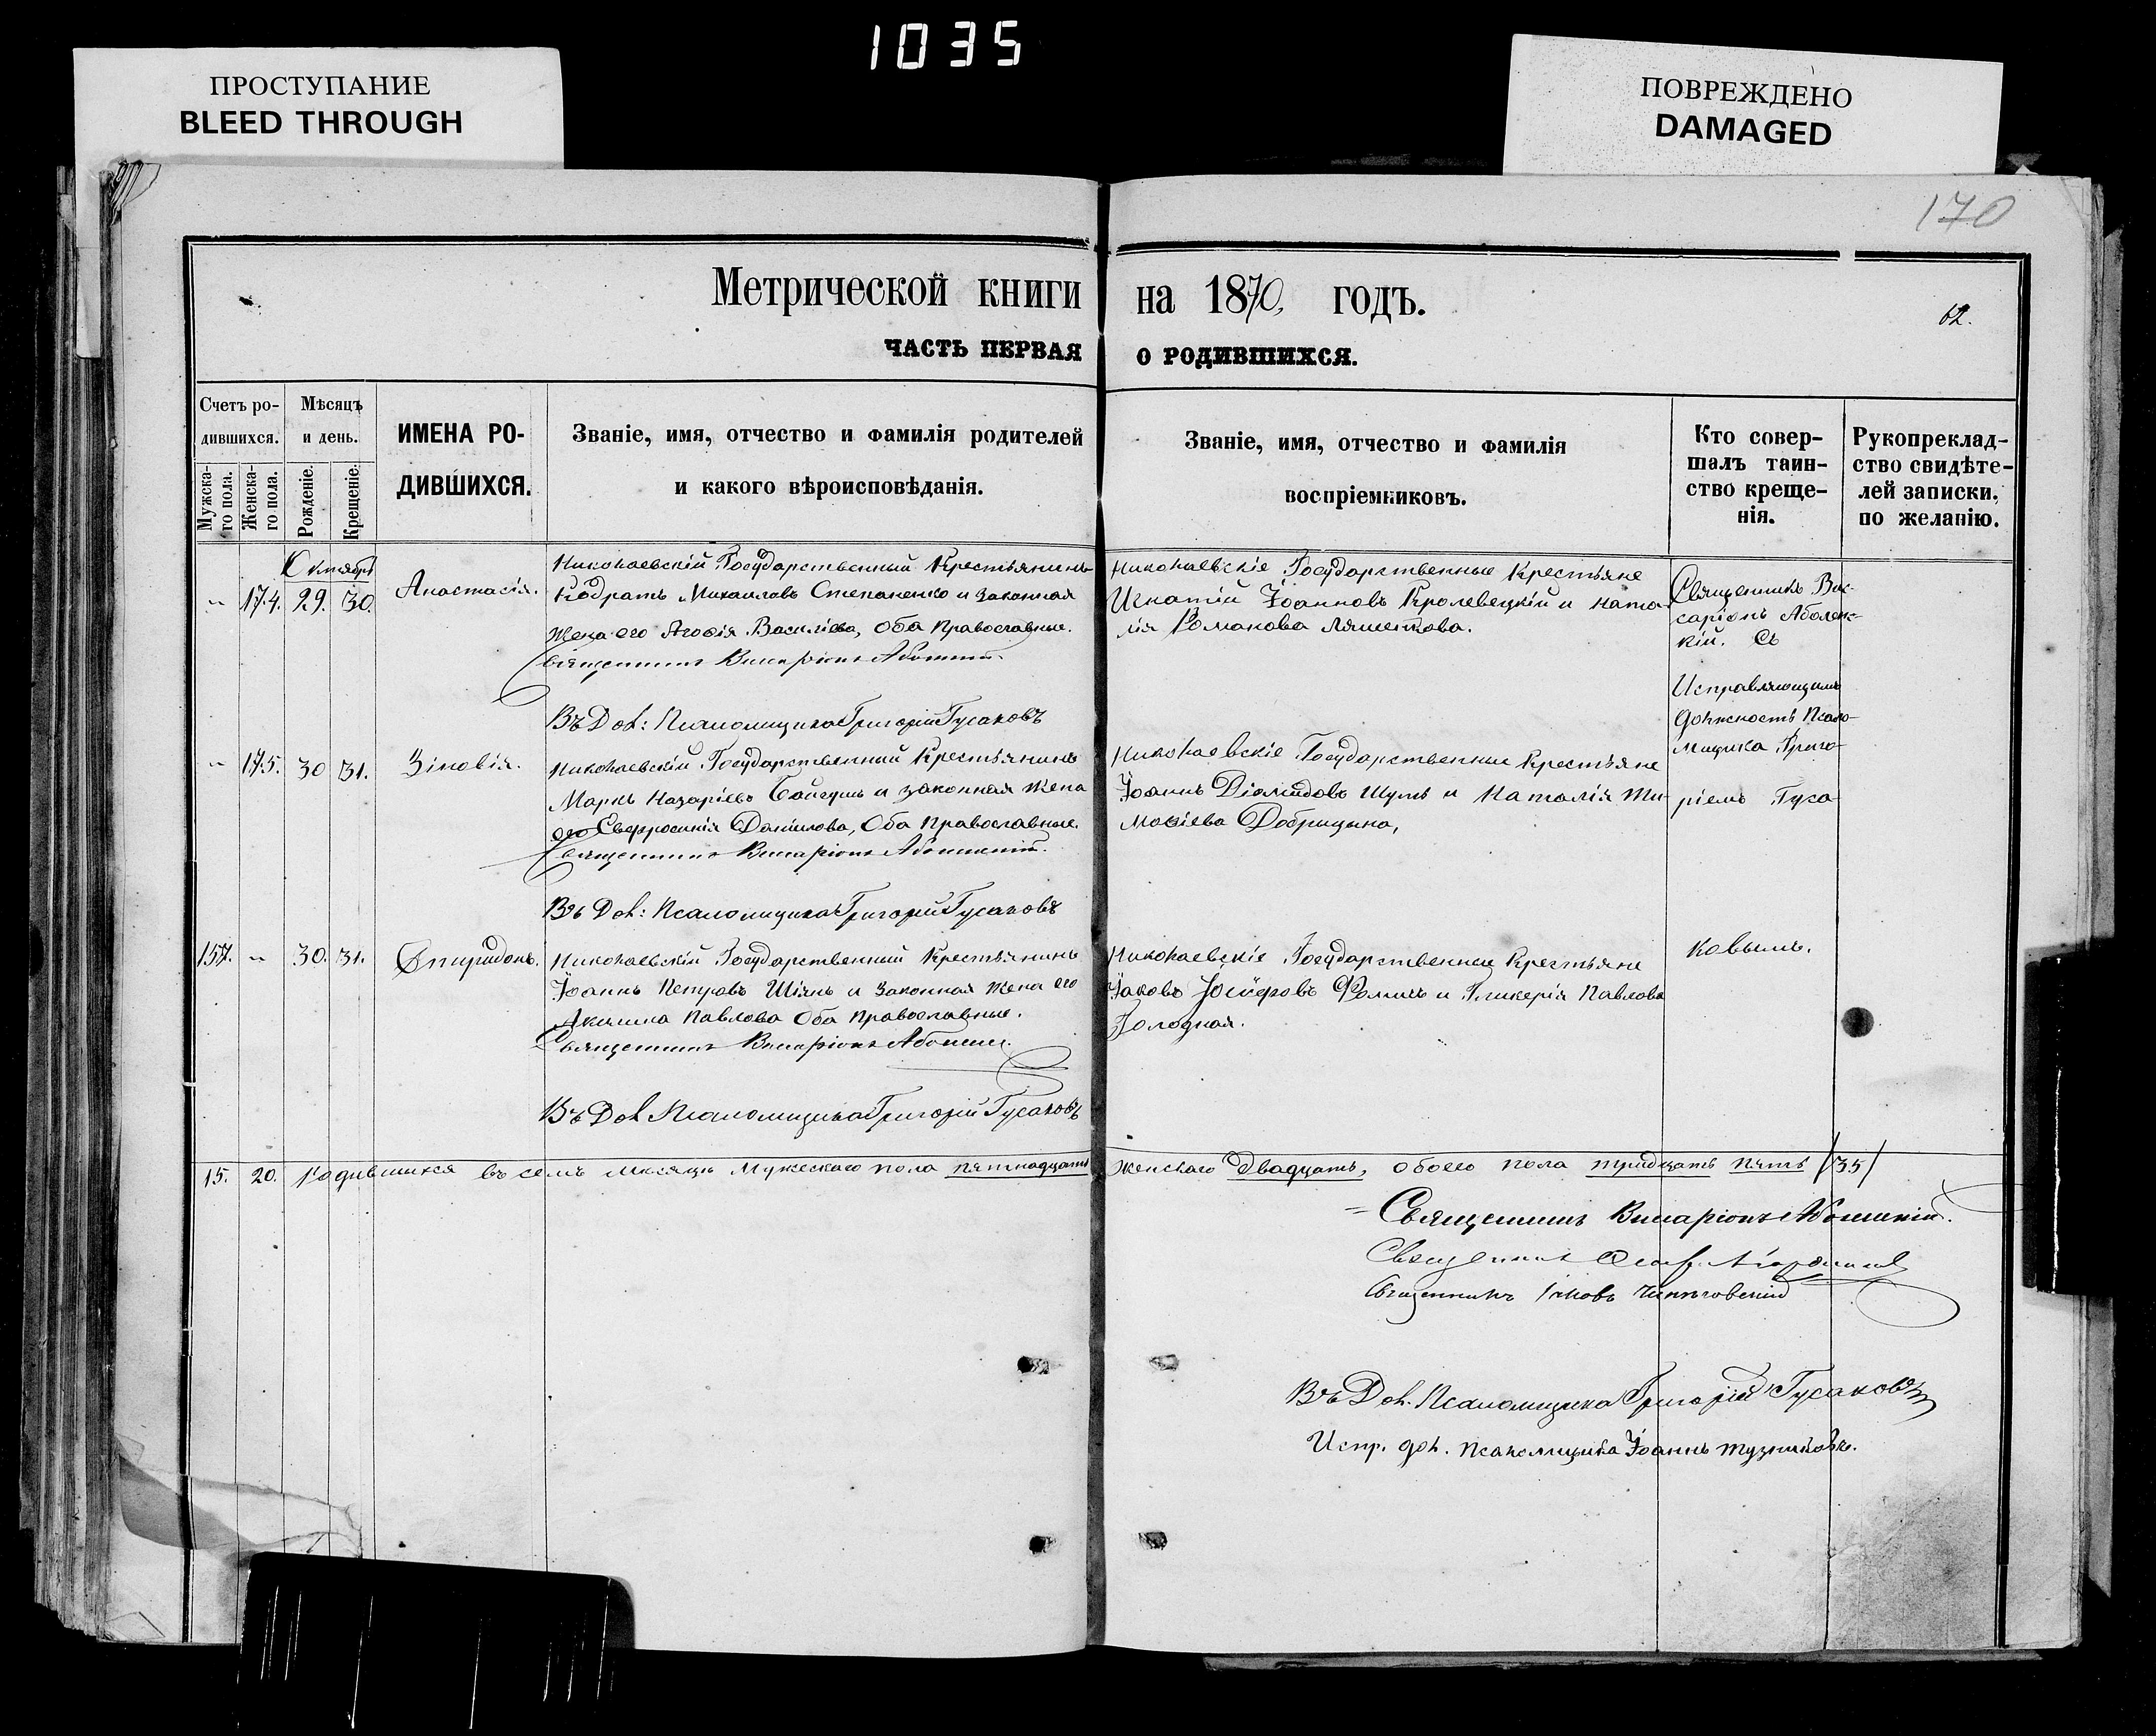 1035
ПРОСТУПАНИЕ
BLEED THROUGH
ПОВРЕЖДЕНО
DAMAGED
170
Метрической книги на 1870, годъ.
62.
ЧАСТЬ ПЕРВАЯ О РОДИВШИХСЯ.
Счетъ ро-
дившихся.
Мужска-
го пола.
Женска-
го пола.
Мѣсяцъ
и день.
Рожденіе.
Крещеніе.
ИМЕНА РО-
ДИВШИХСЯ.
Званіе, имя, отчество и фамилія родителей
и какого вѣроисповѣданія.
Званіе, имя, отчество и фамилія
воспріемниковъ.
Кто совер-
шалъ таин-
ство креще-
нія.
Рукопреклад-
ство свидѣте-
лей записки,
по желанію.
Октябрь
„ 174. 29. 30. Анастасія.
Николаевскій Государственный Крестьянинъ
Кодратъ Михаиловъ Степаненко и законная
жена его Агафія Василіева, Оба Православные.
Священникъ Виссаріонъ
Въ Дол: Псаломщика Григорій Гусаковъ
Николаевскіе Государственные Крестьяне
Игнатій Іоанновъ Кролевецкій и Ната-
лія Романова Ляшенкова.
Священникъ Вис-
саріонъ
кій. Съ
Исправляющимъ
должность Псало-
мщика Григо-
ріемъ Гуса
ковымъ.
„ 175. 30 31. Зіновія.
Николаевскій Государственный Крестьянинъ
Маркъ Назаріевъ и законная жена
его Евфросинія Даніилова, Оба Православные.
Священникъ Виссаріонъ
Въ Дол: Псаломщика Григорій Гусаковъ
Николаевскіе Государственные Крестьяне
Іоаннъ Діамидовъ Шумъ и Наталія Ти-
моѳіева Добрицына,
157. „ 30. 31. Спиридонъ.
Николаевскій Государственный Крестьянинъ
Іоаннъ Петровъ Шіянъ и Законная жена его
Акилина Павлова Оба Православные.
Священникъ Виссаріонъ
Въ Дол Псаломщика Григорій Гусаковъ
Николаевскіе Государственные Крестьяне
Іаковъ Іосифовъ Фоминъ и Гликерія Павлова
Голодная.
15. 20. Родившихся въ семъ мѣсяцѣ Мужескаго пола пятнадцать Женскаго Двадцать, обоего пола тридцать пять /35/
Священникъ Виссаріонъ
Священникъ
Священникъ Іаковъ
Въ Дол. Псаломщика Григорій Гусаковъ
Испр. дол. псаломщика Іоаннъ